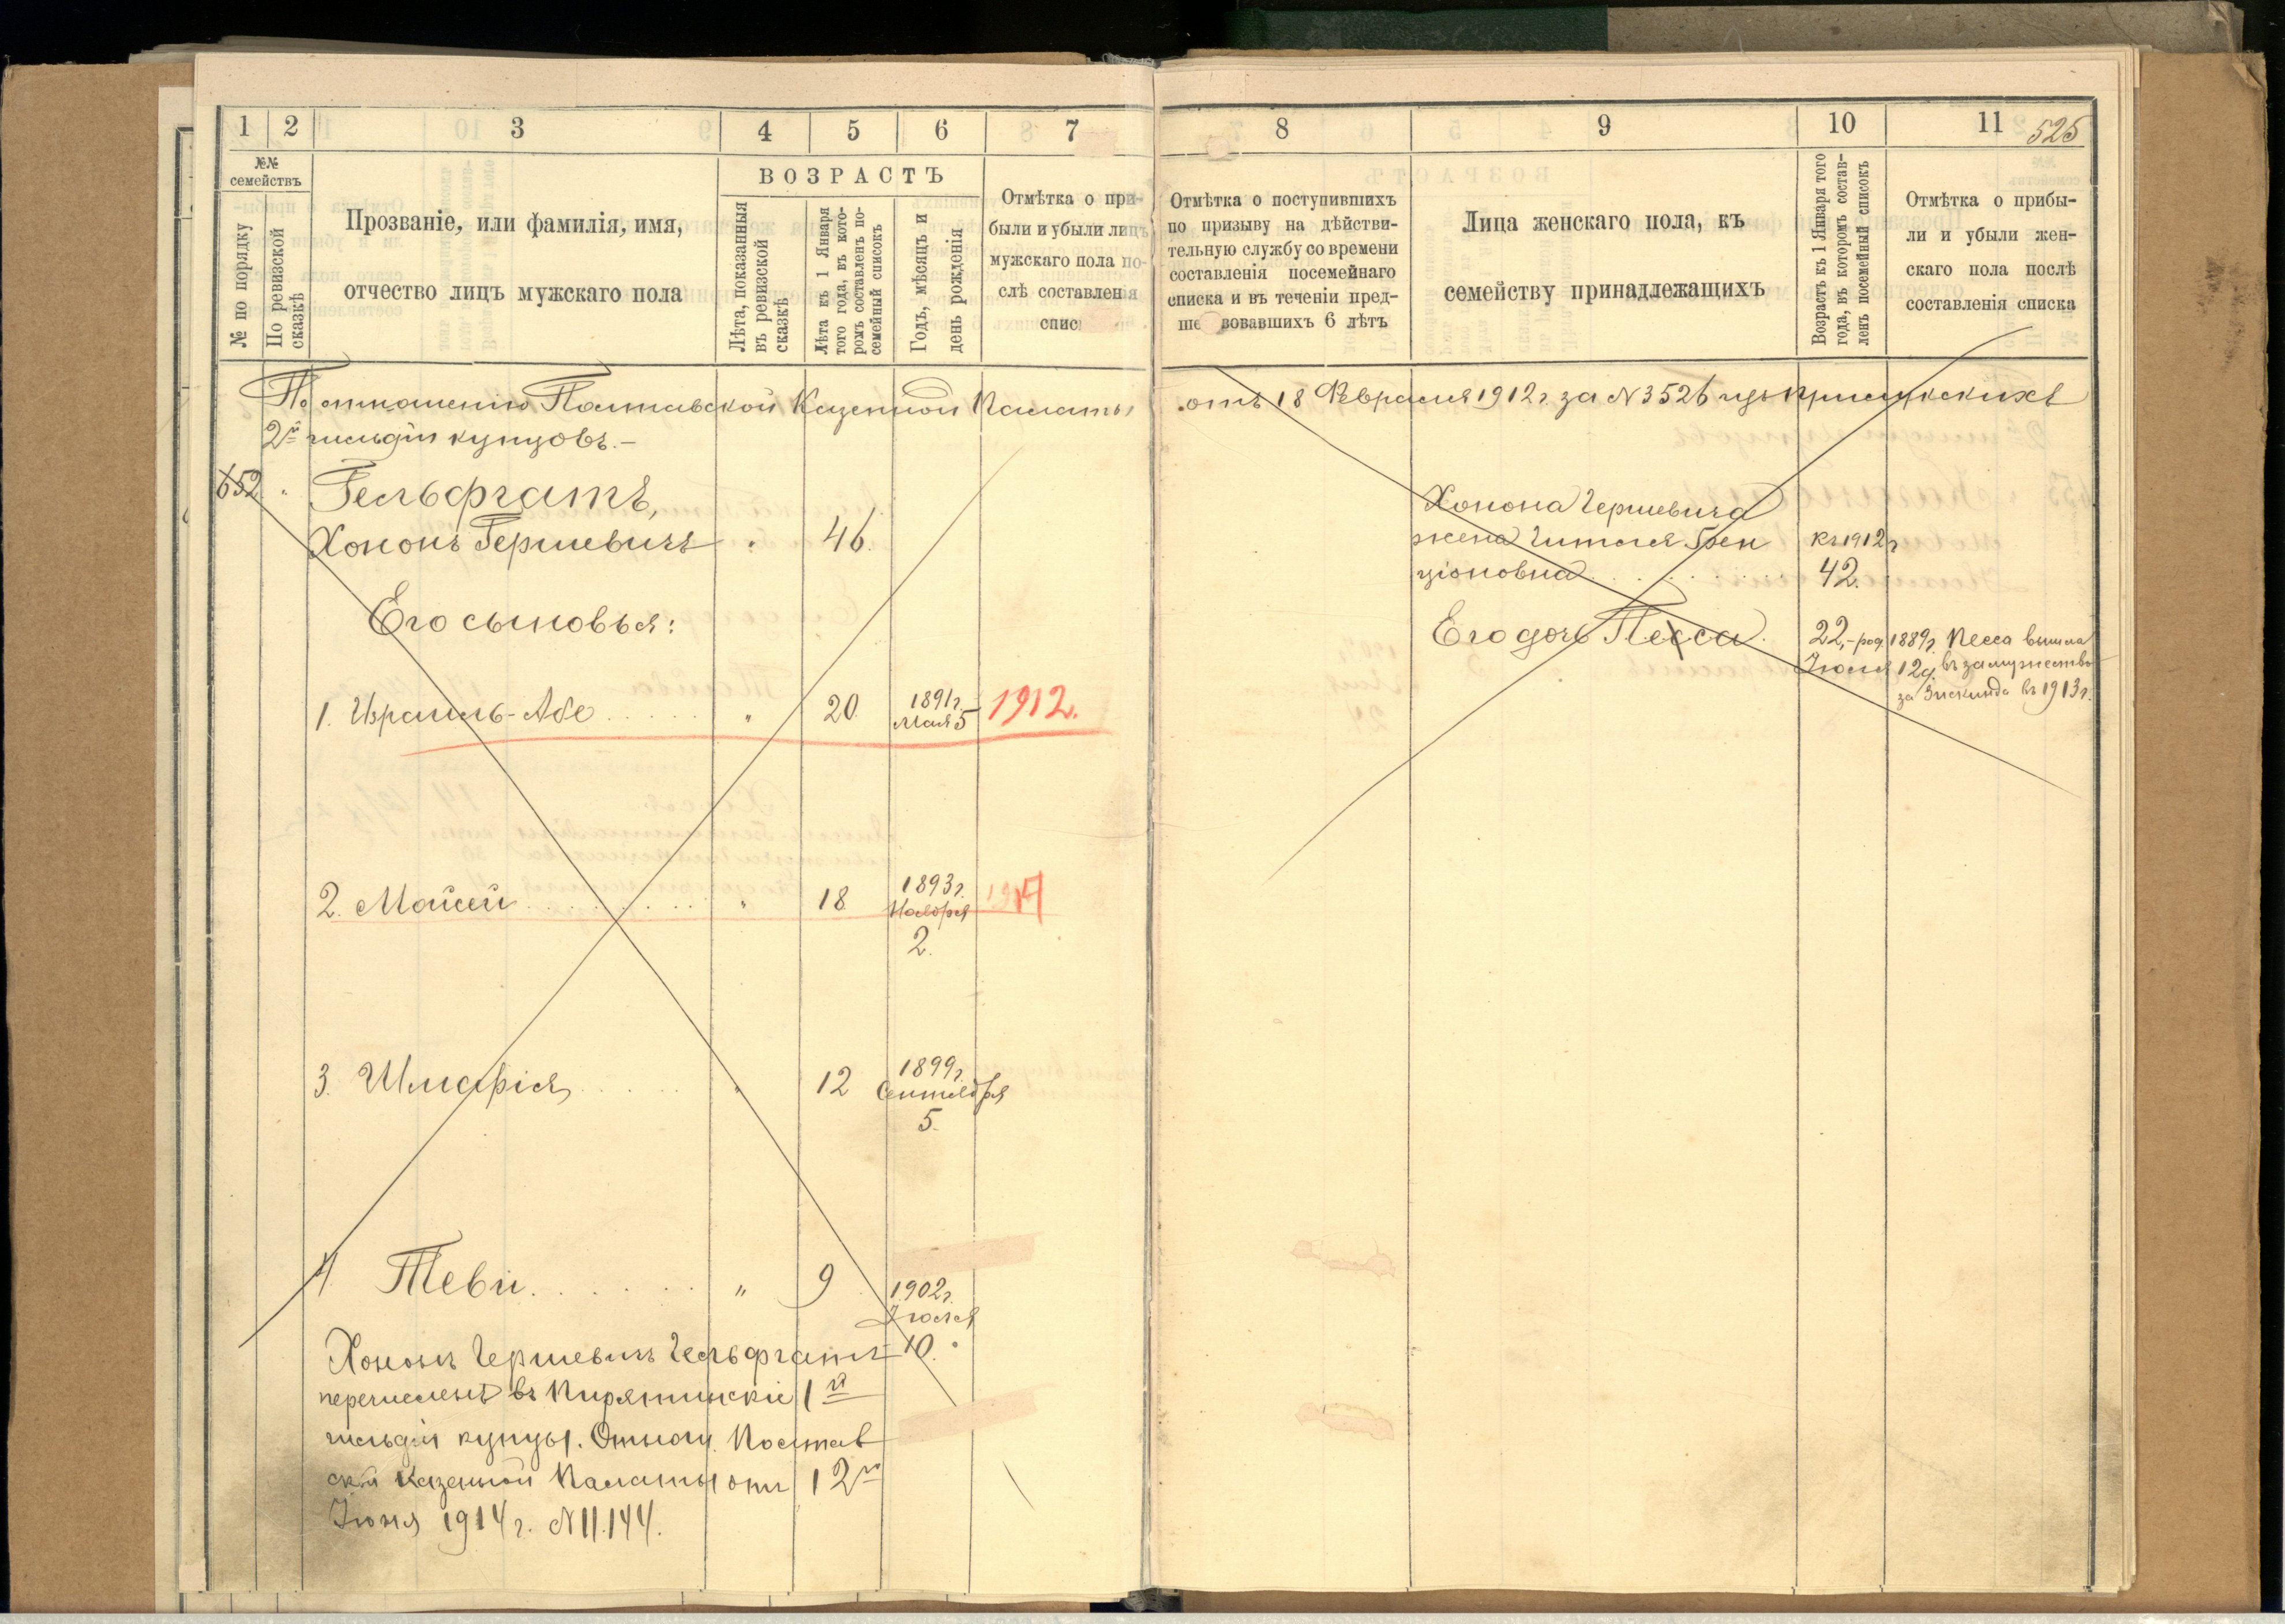 1 2 3 4 5 6 7
№№ семействъ
№ по порядку
По ревизской сказкѣ
Прозваніе, или фамилія, имя,
отчество лицъ мужскаго пола
ВОЗРАСТЪ
Лѣта, показанныя
въ ревизской
сказкѣ
Лѣта къ 1 Января
того года, въ кото-
ромъ составленъ по-
семейный списокъ
Годъ, мѣсяцъ и
день рожденія
Отмѣтка о при-
были и убыли лицъ
мужскаго пола по-
слѣ составленія
спис
По отношенію Полтавской Казенной Палаты
2й гильдіи купцовъ.-
652 Гельфгатъ,
Хононъ Гершевичъ 46.
Его сыновья:
1. Израиль-Абе..... " 20 1891г. Мая 5 1912.
2. Мойсей......... " 18 1893г. Ноября 2. 1914
3. Шмарія...... " 12 1899г. Сентября 5.
4 Теви....... " 9 1902г. Іюля 10.
Хононъ Гершевичъ Гельфгатъ
перечисленъ въ Пирятинскіе 1й
гильдіи купцы. Отнош. Полтав
ской Казенной Палаты отъ 12го
Іюня 1914 г. N 11.144.
8 9 10 11 525
Отмѣтка о поступившихъ
по призыву на дѣйстви-
тельную службу со времени
составленія посемейнаго
списка и въ теченіи пред-
ше вовавшихъ 6 лѣтъ
Лица женскаго пола, къ
семейству принадлежащихъ
Возрастъ къ 1 Января того
года, въ которомъ состав-
ленъ посемейный списокъ
Отмѣтка о прибы-
ли и убыли жен-
скаго пола послѣ
составленія списка
отъ 18 Февраля 1912 г. за N 3526 изъ Прилукскихъ
Хонона Гершевича
жена Гитля Бен къ 1912 г
ціоновна......... 42.
Его дочь Песса. 22,-род. 1889г. Песса вышла
Іюля 12д. въ замужество
за Зискинда въ 1913 г.